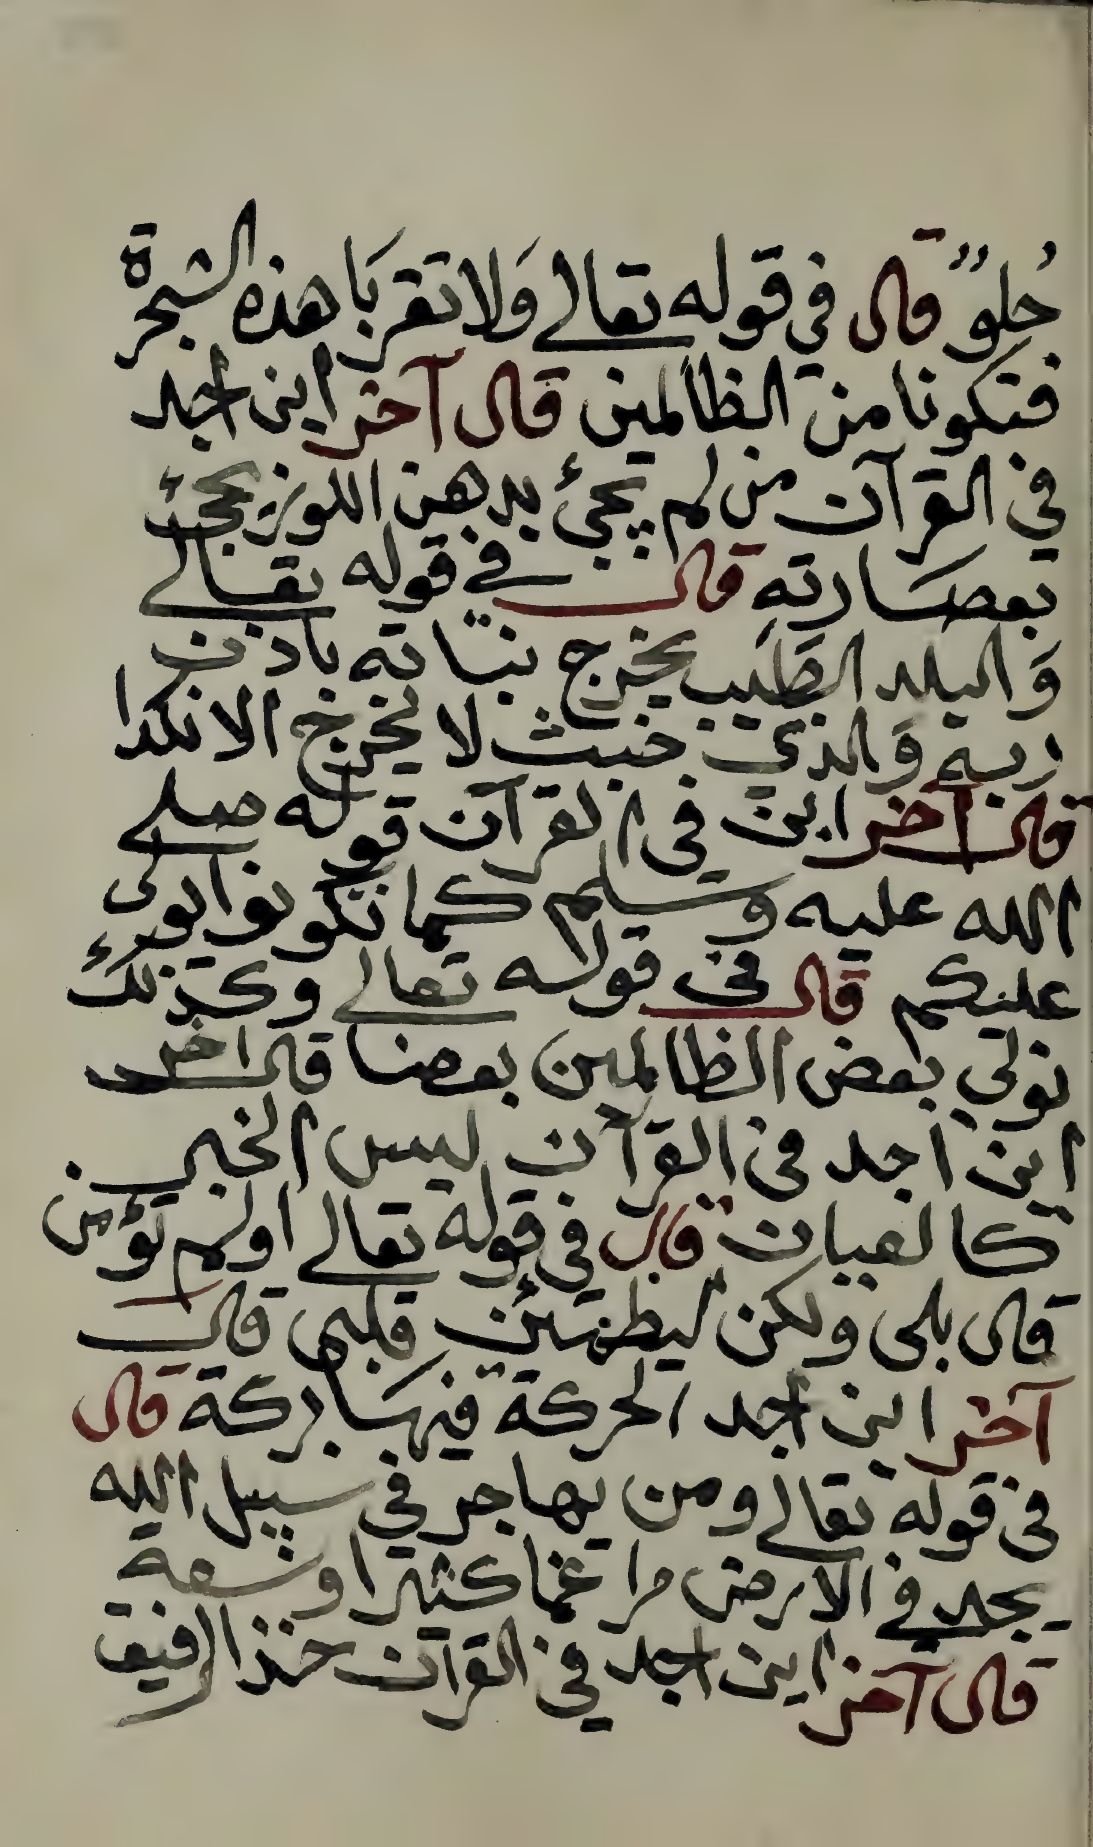 حُلو قال في قوله تعالى وَلا تقربَا هذه الشجرة
فتكونا من الظالمين قال آخر اين اجد
في القرآن من لم يجئ بدهن اللوز يجئ
بعصارته قال في قوله تعالى
وَالبلد الطيب يخرج نباته باذن
ربه وَالذي خبث لا يخرج الا نكدا
قال آخر اين في القرآن قوله صلى
الله عليه وسلم كما تكونوا يولى
عليكم قال في قوله تعالى وكذلك
نولي بعض الظالمين بعضا قال اخر
اين اجد في القرآن ليس الخبر
كالعيان قال في قوله تعالى اولم تؤمن
قال بلى ولكن ليطمئن قلبي قال
آخر اين اجد الحركة فيها بركة قال
في قوله تعالى ومن يهاجر في سبيل الله
يجد في الارض مراغما كثيرا وسعة
قال آخر اين اجد في القرآن خذ الرفيق